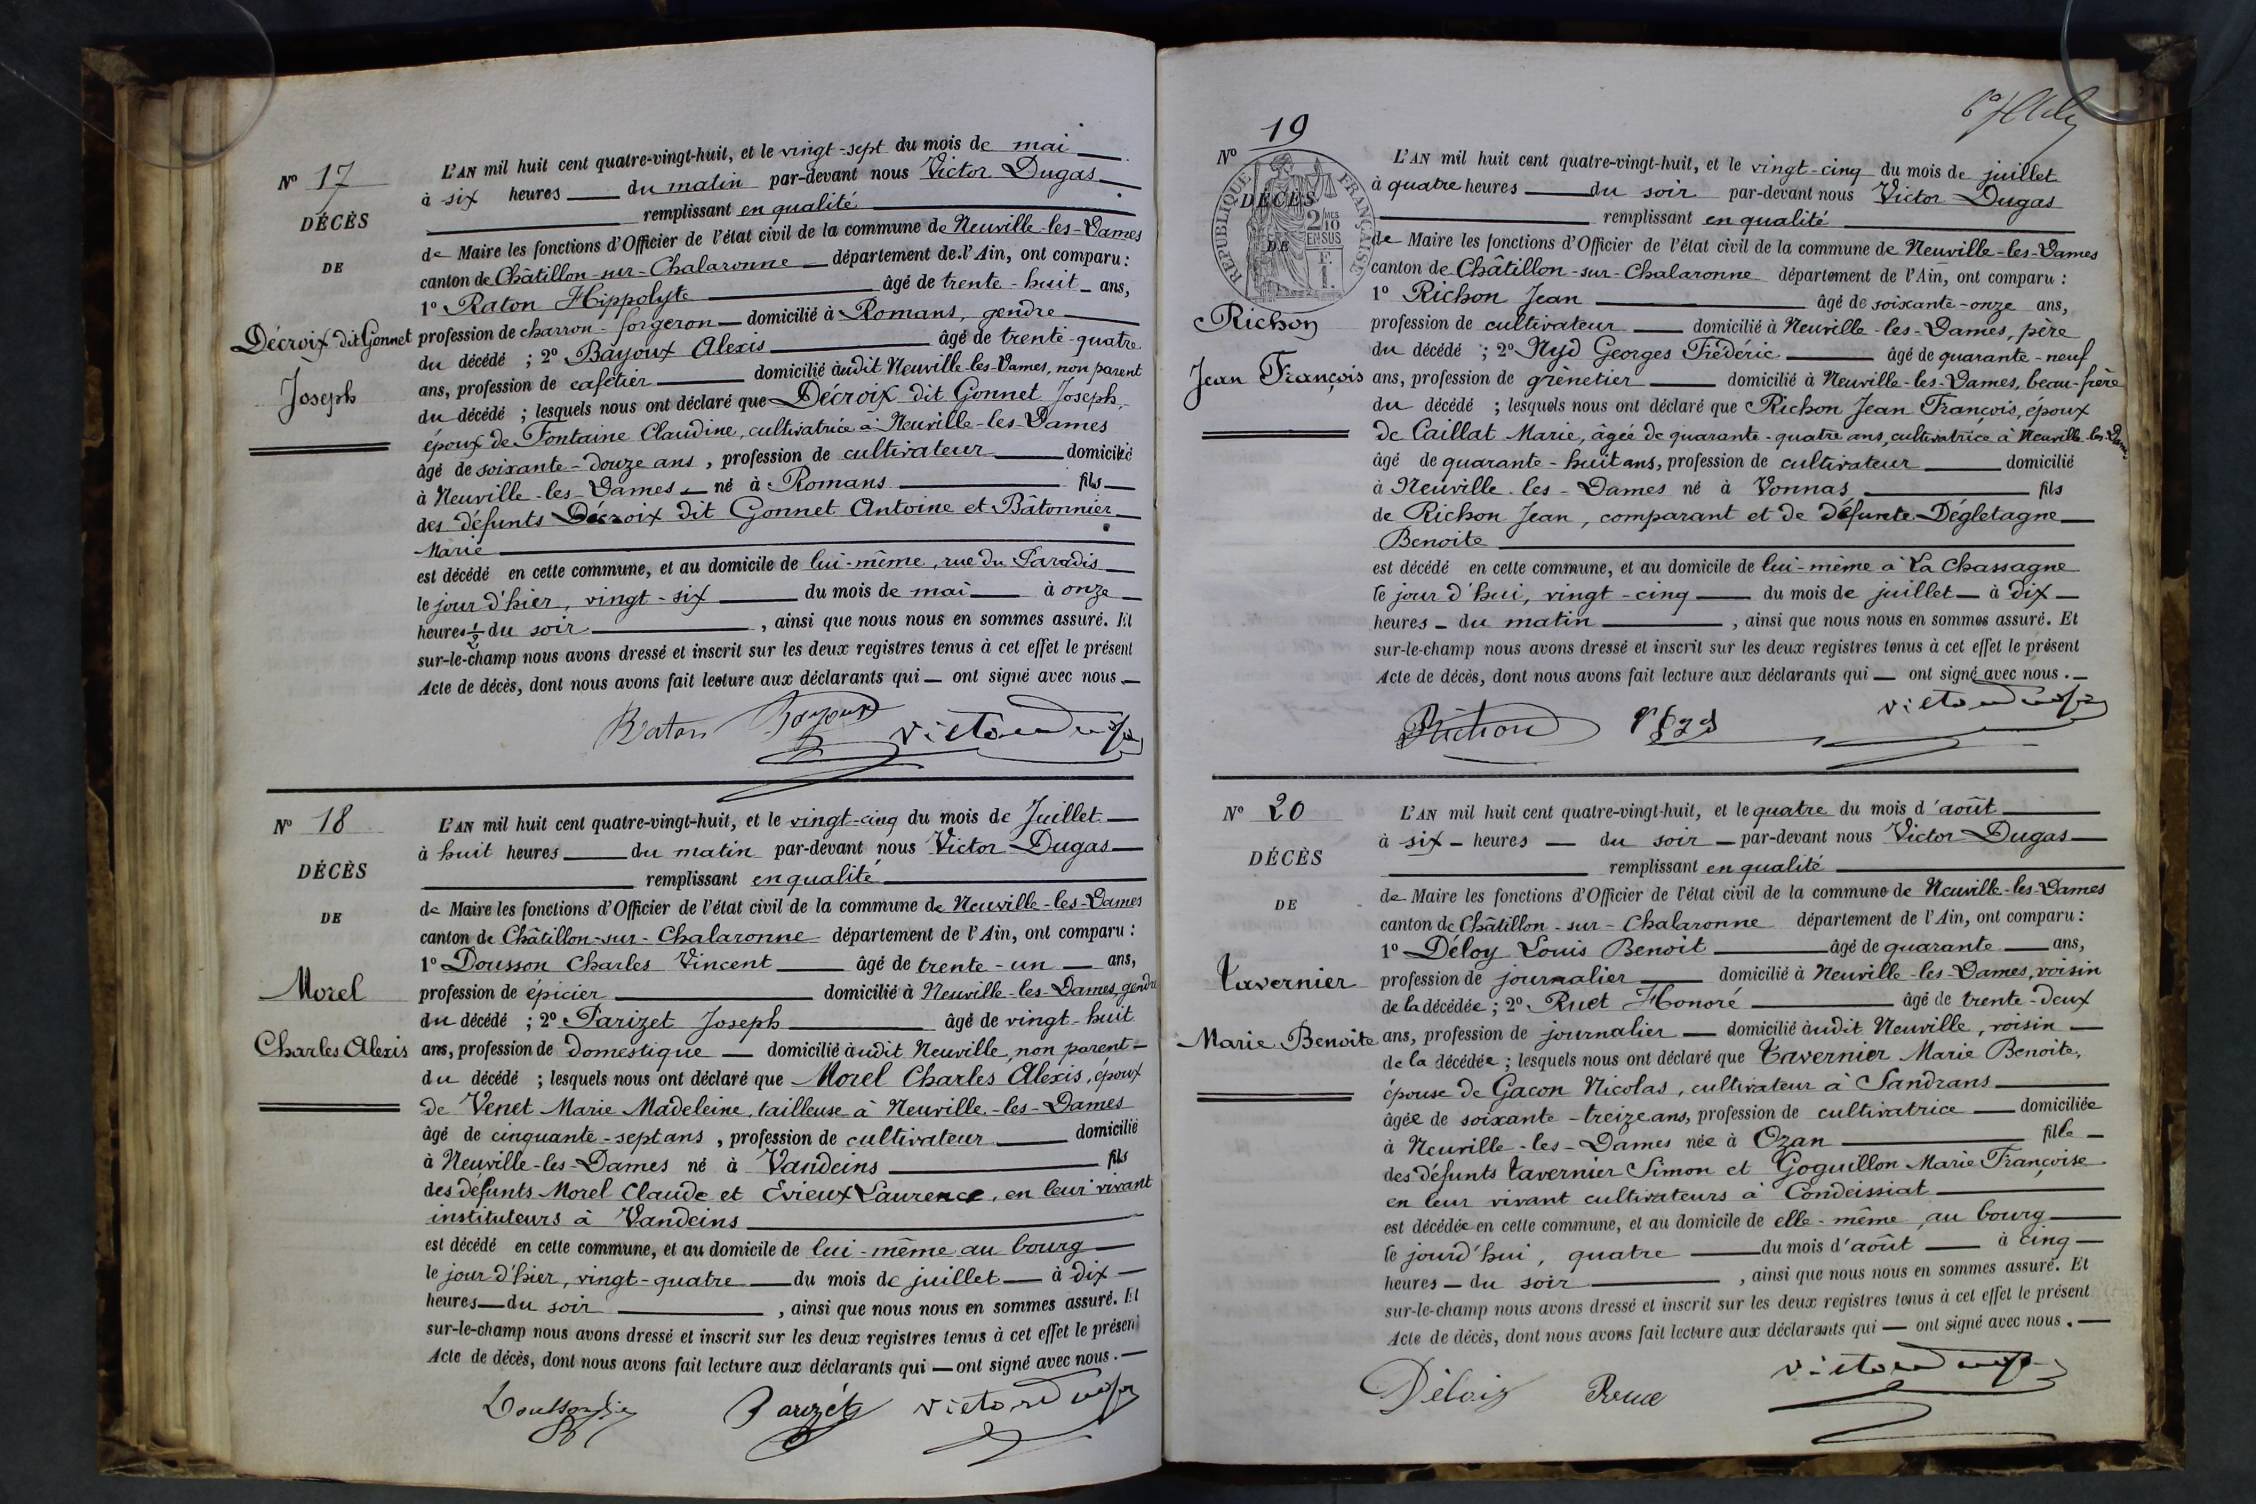 N° 17
DÉCÈS
DE
Décroix dit Gonnet
Joseph
L'AN mil huit cent quatre-vingt-huit, et le vingt-sept du mois de mai
à six heures du matin par-devant nous Victor Dugas
remplissant en qualité
de Maire les fonctions d'Officier de l'état civil de la commune de Neuville-les-Dames
canton de Châtillon-sur-Chalaronne département de l'Ain, ont comparu :
1° Raton Hippolyte âgé de trente-huit ans,
profession de charron-forgeron domicilié à Romans, gendre
du décédé ; 2° Bayoux Alexis âgé de trente-quatre
ans, profession de cafetier domicilié àudit Neuville-les-Dames, non parent
du décédé ; lesquels nous ont déclaré que Décroix dit Gonnet Joseph,
époux de Fontaine Claudine, cultivatrice à Neuville-les-Dames
âgé de soixante-douze ans, profession de cultivateur domicilié
à Neuville-les-Dames né à Romans fils
des défunts Décroix dit Gonnet Antoine et Bâtonnier
Marie
est décédé en cette commune, et au domicile de lui-même, rue du Paradis
le jour d'hier, vingt-six du mois de mai à onze
heures ½ du soir, ainsi que nous nous en sommes assuré. Et
sur-le-champ nous avons dressé et inscrit sur les deux registres tenus à cet effet le présent
Acte de décès, dont nous avons fait lecture aux déclarants qui — ont signé avec nous.
Raton Bayoux Victor Dugas
N° 18
DÉCÈS
DE
Morel
Charles Alexis
L'AN mil huit cent quatre-vingt-huit, et le vingt-cinq du mois de Juillet
à huit heures du matin par-devant nous Victor Dugas
remplissant en qualité
de Maire les fonctions d'Officier de l'état civil de la commune de Neuville-les-Dames
canton de Châtillon-sur-Chalaronne département de l'Ain, ont comparu :
1° Dousson Charles Vincent âgé de trente-un ans,
profession de épicier domicilié à Neuville-les-Dames, gendre
du décédé ; 2° Parizet Joseph âgé de vingt-huit
ans, profession de domestique domicilié àudit Neuville, non parent
du décédé ; lesquels nous ont déclaré que Morel Charles Alexis, époux
de Venet Marie Madeleine, tailleuse à Neuville-les-Dames
âgé de cinquante-sept ans, profession de cultivateur domicilié
à Neuville-les-Dames né à Vandeins fils
des défunts Morel Claude et Evieux Laurence, en leur vivant
instituteurs à Vandeins
est décédé en cette commune, et au domicile de lui-même au bourg
le jour d'hier, vingt-quatre du mois de juillet à dix
heures du soir, ainsi que nous nous en sommes assuré. Et
sur-le-champ nous avons dressé et inscrit sur les deux registres tenus à cet effet le présent
Acte de décès, dont nous avons fait lecture aux déclarants qui — ont signé avec nous.
Parizet Victor Dugas
N° 19
RÉPUBLIQUE FRANÇAISE
2 MES 10 EN SUS
DÉCÈS
DE
Richon
Jean François
L'AN mil huit cent quatre-vingt-huit, et le vingt-cinq du mois de juillet
à quatre heures du soir par-devant nous Victor Dugas
remplissant en qualité
de Maire les fonctions d'Officier de l'état civil de la commune de Neuville-les-Dames
canton de Châtillon-sur-Chalaronne département de l'Ain, ont comparu :
1° Richon Jean âgé de soixante-onze ans,
profession de cultivateur domicilié à Neuville-les-Dames, père
du décédé ; 2° Nyd Georges Frédéric âgé de quarante-neuf
ans, profession de grènetier domicilié à Neuville-les-Dames, beau-frère
du décédé ; lesquels nous ont déclaré que Richon Jean François, époux
de Caillat Marie, âgée de quarante-quatre ans, cultivatrice à Neuville-les-Dames
âgé de quarante-huit ans, profession de cultivateur domicilié
à Neuville-les-Dames né à Vonnas fils
de Richon Jean, comparant et de défunte Dégletagne
Benoite
est décédé en cette commune, et au domicile de lui-même à La Chassagne
le jour d'hui, vingt-cinq du mois de juillet à dix
heures du matin, ainsi que nous nous en sommes assuré. Et
sur-le-champ nous avons dressé et inscrit sur les deux registres tenus à cet effet le présent
Acte de décès, dont nous avons fait lecture aux déclarants qui — ont signé avec nous.
Richon Victor Dugas
N° 20
DÉCÈS
DE
Tavernier
Marie Benoite
L'AN mil huit cent quatre-vingt-huit, et le quatre du mois d'août
à six heures du soir par-devant nous Victor Dugas
remplissant en qualité
de Maire les fonctions d'Officier de l'état civil de la commune de Neuville-les-Dames
canton de Châtillon-sur-Chalaronne département de l'Ain, ont comparu :
1° Déloy Louis Benoit âgé de quarante ans,
profession de journalier domicilié à Neuville-les-Dames, voisin
de la décédée ; 2° Ruet Honoré âgé de trente-deux
ans, profession de journalier domicilié àudit Neuville, voisin
de la décédée ; lesquels nous ont déclaré que Tavernier Marie Benoite,
épouse de Gacon Nicolas, cultivateur à Sandrans
âgée de soixante-treize ans, profession de cultivatrice domiciliée
à Neuville-les-Dames née à Ozan fille
des défunts Tavernier Simon et Goguillon Marie Françoise
en leur vivant cultivateurs à Condeissiat
est décédée en cette commune, et au domicile de elle-même, au bourg
le jourd'hui, quatre du mois d'août à cinq
heures du soir, ainsi que nous nous en sommes assuré. Et
sur-le-champ nous avons dressé et inscrit sur les deux registres tenus à cet effet le présent
Acte de décès, dont nous avons fait lecture aux déclarants qui — ont signé avec nous.
Victor Dugas